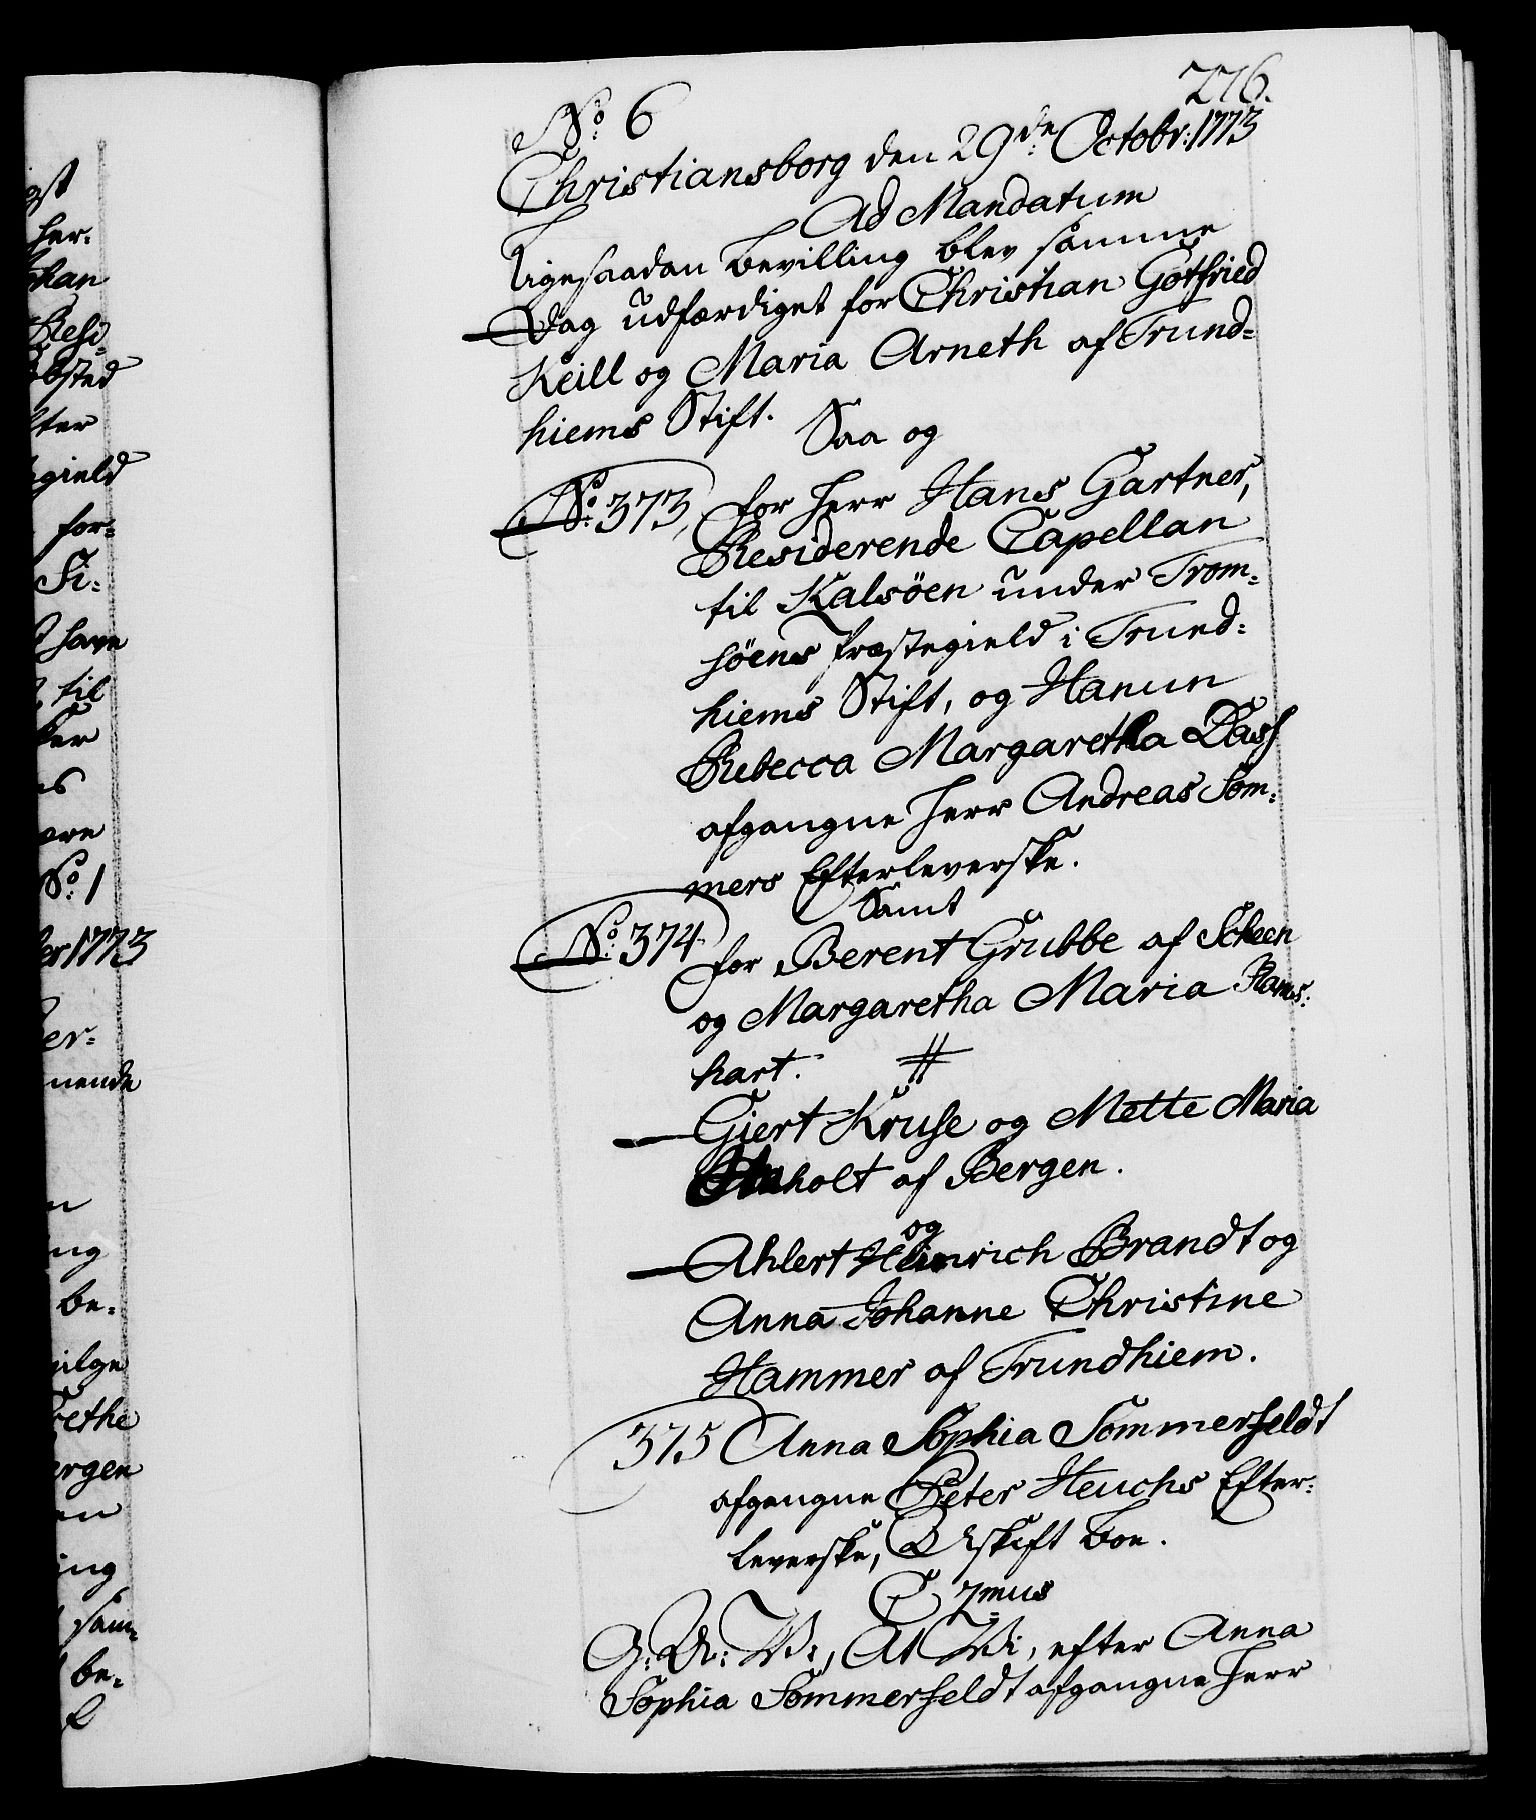 276.
No 6
Christiansborg den 29de Octobr: 1773
Ad Mandatum
Ligesaadan Bevilling blev samme
Dag udfærdiget for Christian Gotfried
Keill og Maria Arneth af Trund-
hiems Stift. Saa og
No 373, for Herr Hans Gartner,
Residerende Capellan
til Kalsöen under Trom-
söens Præstegield i Trund-
hiems Stift, og Hanun
Rebecca Margaretha Dass
afgangne Herr Andreas Som-
mers Efterleverske.
Samt
No 374. for Berent Grubbe af Scheen
og Margaretha Maria Rams:
hart. #
Giert Kruse og Mette Maria
holt af Bergen.
og
Ahlert Heinrich Brandt og
Anna Johanne Christine
Hammer af Trundhiem.
375 Anna Sophia Sommerfeldt
afgangne Peter Heuchs Efter-
leverske, Uskift Boe.
C 7mus
G: A: V:, At Vi, efter Anna
Sophia Sommerfeldt afgangne Herr
gst
Her-
Resi-
ter
gield
for-
Si-
have
til
No 1
1773
er-
nende
ng
be-
rethe
ergen
ing
sam-
be-